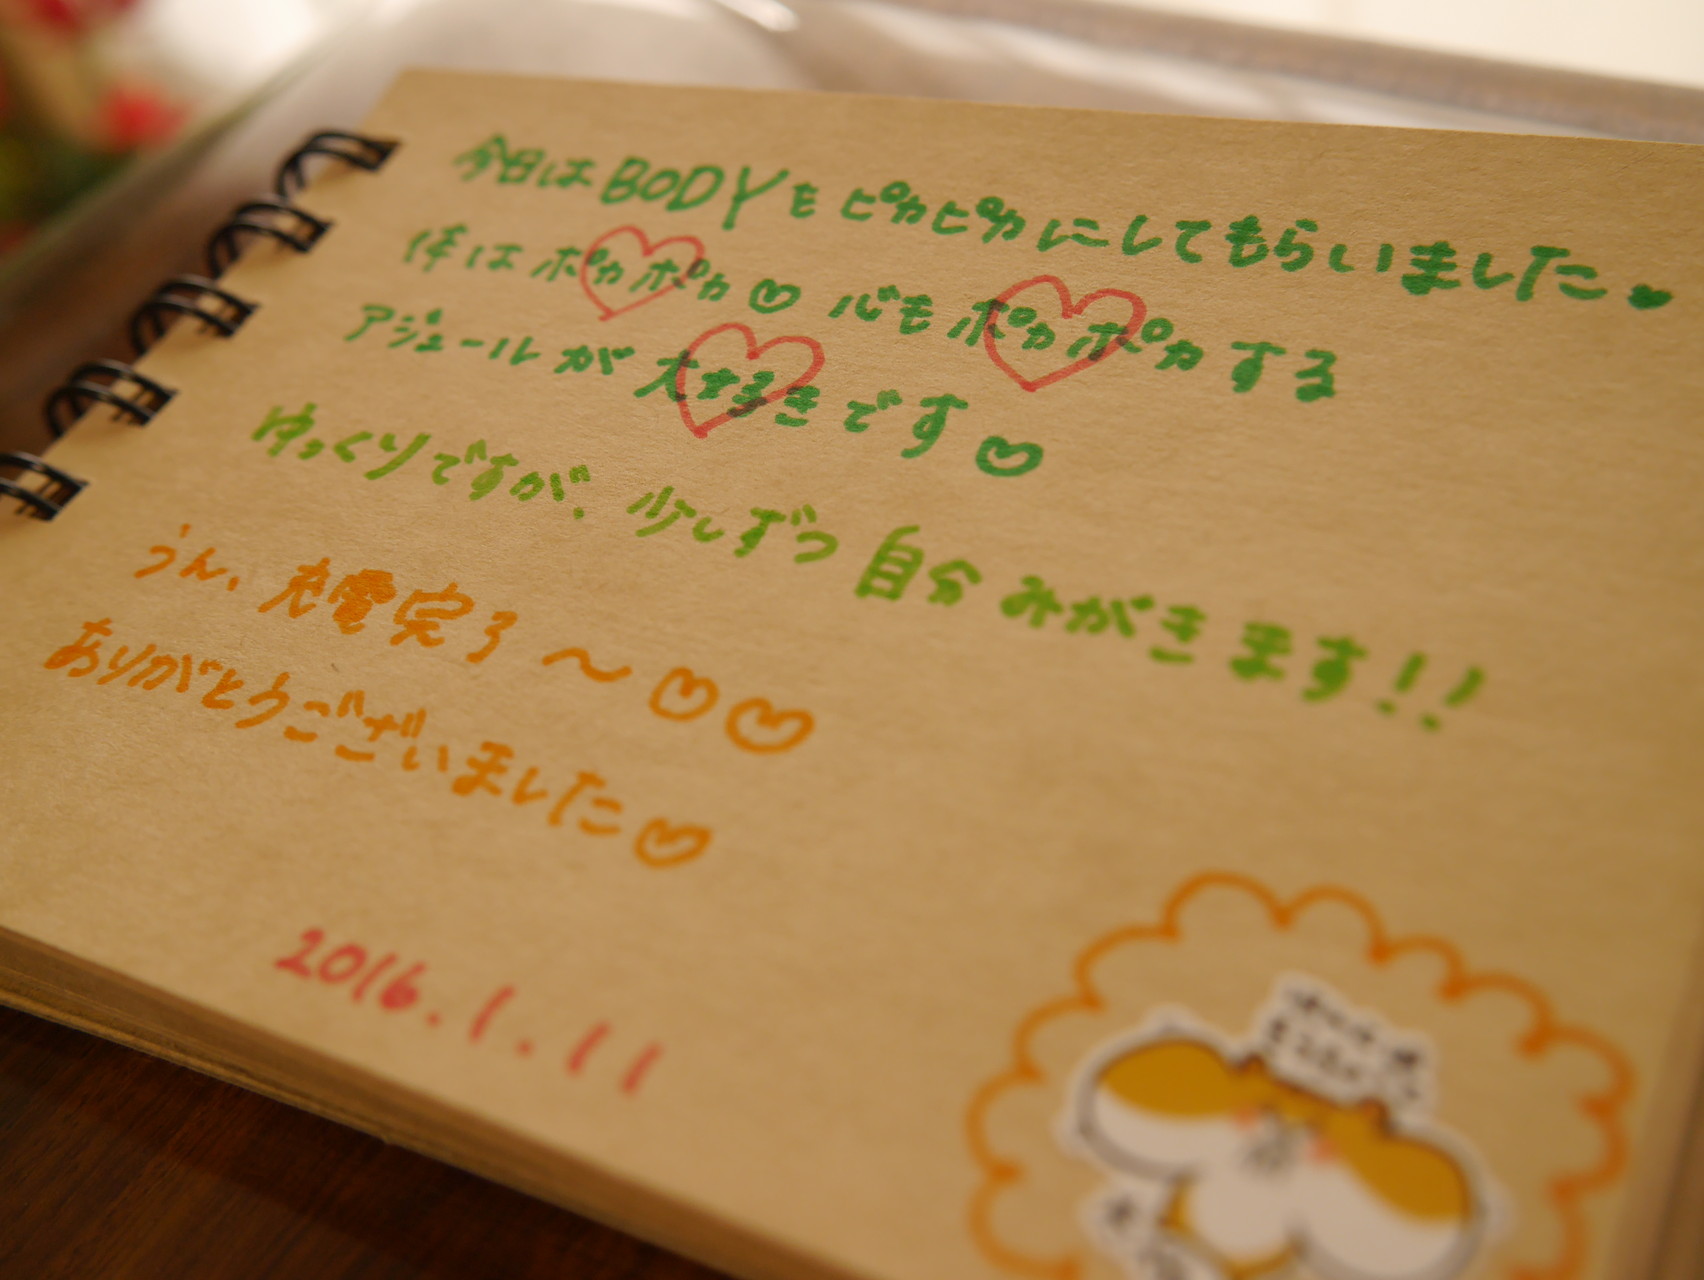 今日はBODYもピカピカにしてもらいました♥
体はポカポカ♡ 心もポカポカする
アジュールが大好きです♡
ゆっくりですが、少しずつ自分みがきます!!
うん、充電完了〜♡♡
ありがとうございました♡
2016.1.11